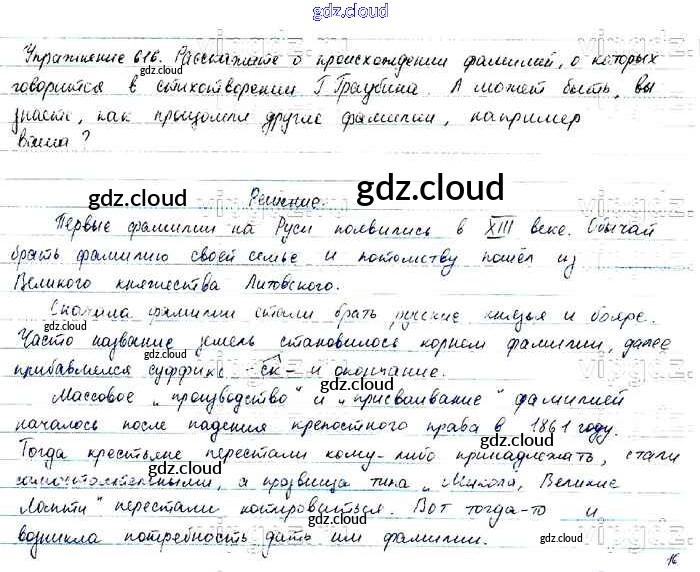 gdz.cloud
Упражнение 616. Расскажите о происхождении фамилий, о которых
говорится в стихотворении Г. Граубина. А может быть, вы
знаете, как произошли другие фамилии, например
ваша?
Решение.
Первые фамилии на Руси появились в XIII веке. Обычай
брать фамилию своей семье и потомству пошёл из
Великого княжества Литовского.
Сначала фамилии стали брать русские князья и бояре.
Часто название земель становилось корнем фамилии, далее
прибавлялся суффикс -ск- и окончание.
Массовое „производство" и „присваивание" фамилией
началось после падения крепостного права в 1861 году.
Тогда крестьяне перестали кому-либо принадлежать, стали
самостоятельными, а прозвища типа „Микола, Великие
Лапти" перестали котироваться. Вот тогда-то и
возникла потребность дать им фамилии.
16
gdz.cloud
gdz.cloud
gdz.cloud
gdz.cloud
gdz.cloud
gdz.cloud
gdz.cloud
gdz.cloud
gdz.cloud
gdz.cloud
gdz.cloud